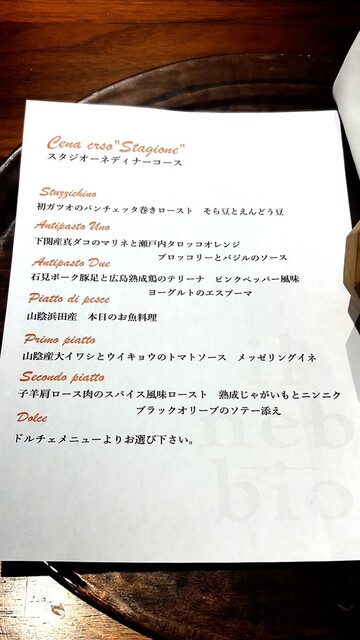 Cena crso"Stagione"
スタジオーネディナーコース
Stuzzichino
初ガツオのパンチェッタ巻きロースト　そら豆とえんどう豆
Antipasto Uno
下関産真ダコのマリネと瀬戸内タロッコオレンジ
ブロッコリーとバジルのソース
Antipasto Due
石見ポーク豚足と広島熟成鶏のテリーナ　ピンクペッパー風味
ヨーグルトのエスプーマ
Piatto di pesce
山陰浜田産　本日のお魚料理
Primo piatto
山陰産大イワシとウイキョウのトマトソース　メッゼリングイネ
Secondo piatto
子羊肩ロース肉のスパイス風味ロースト　熟成じゃがいもとニンニク
ブラックオリーブのソテー添え
Dolce
ドルチェメニューよりお選び下さい。
neb
bio